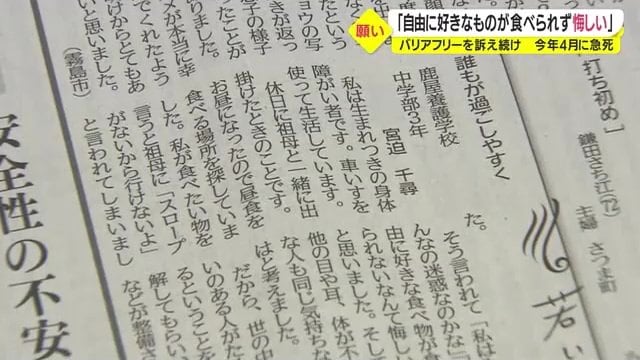 願い
「自由に好きなものが食べられず悔しい」
バリアフリーを訴え続け 今年4月に急死
打ち初め」
鎌田さち江(72)
主婦 さつま町
若い
誰もが過ごしやすく
鹿屋養護学校
中学部3年
宮迫 千尋
私は生まれつきの身体
障がい者です。車いすを
使って生活しています。
休日に祖母と一緒に出
掛けたときのことです。
お昼になったので昼食を
食べる場所を探していま
した。私が食べたい物を
言うと祖母に「スロープ
がないから行けないよ」
と言われてしまいまし
た。
そう言われて「私は
んなの迷惑なのかな
由に好きな食べ物が
られないなんて悔し
と思いました。そし
他の目や耳、体が不
な人も同じ気持ちな
はと考えました。
だから、世の中
いのある人がた
るということを
解してもらい、
などが整備さ
たという
ョウの写
が返っ
子の様子
メが本当に幸
てくれたよう
けからとてもあ
と思いました。
(霧島市)
安全性の不安